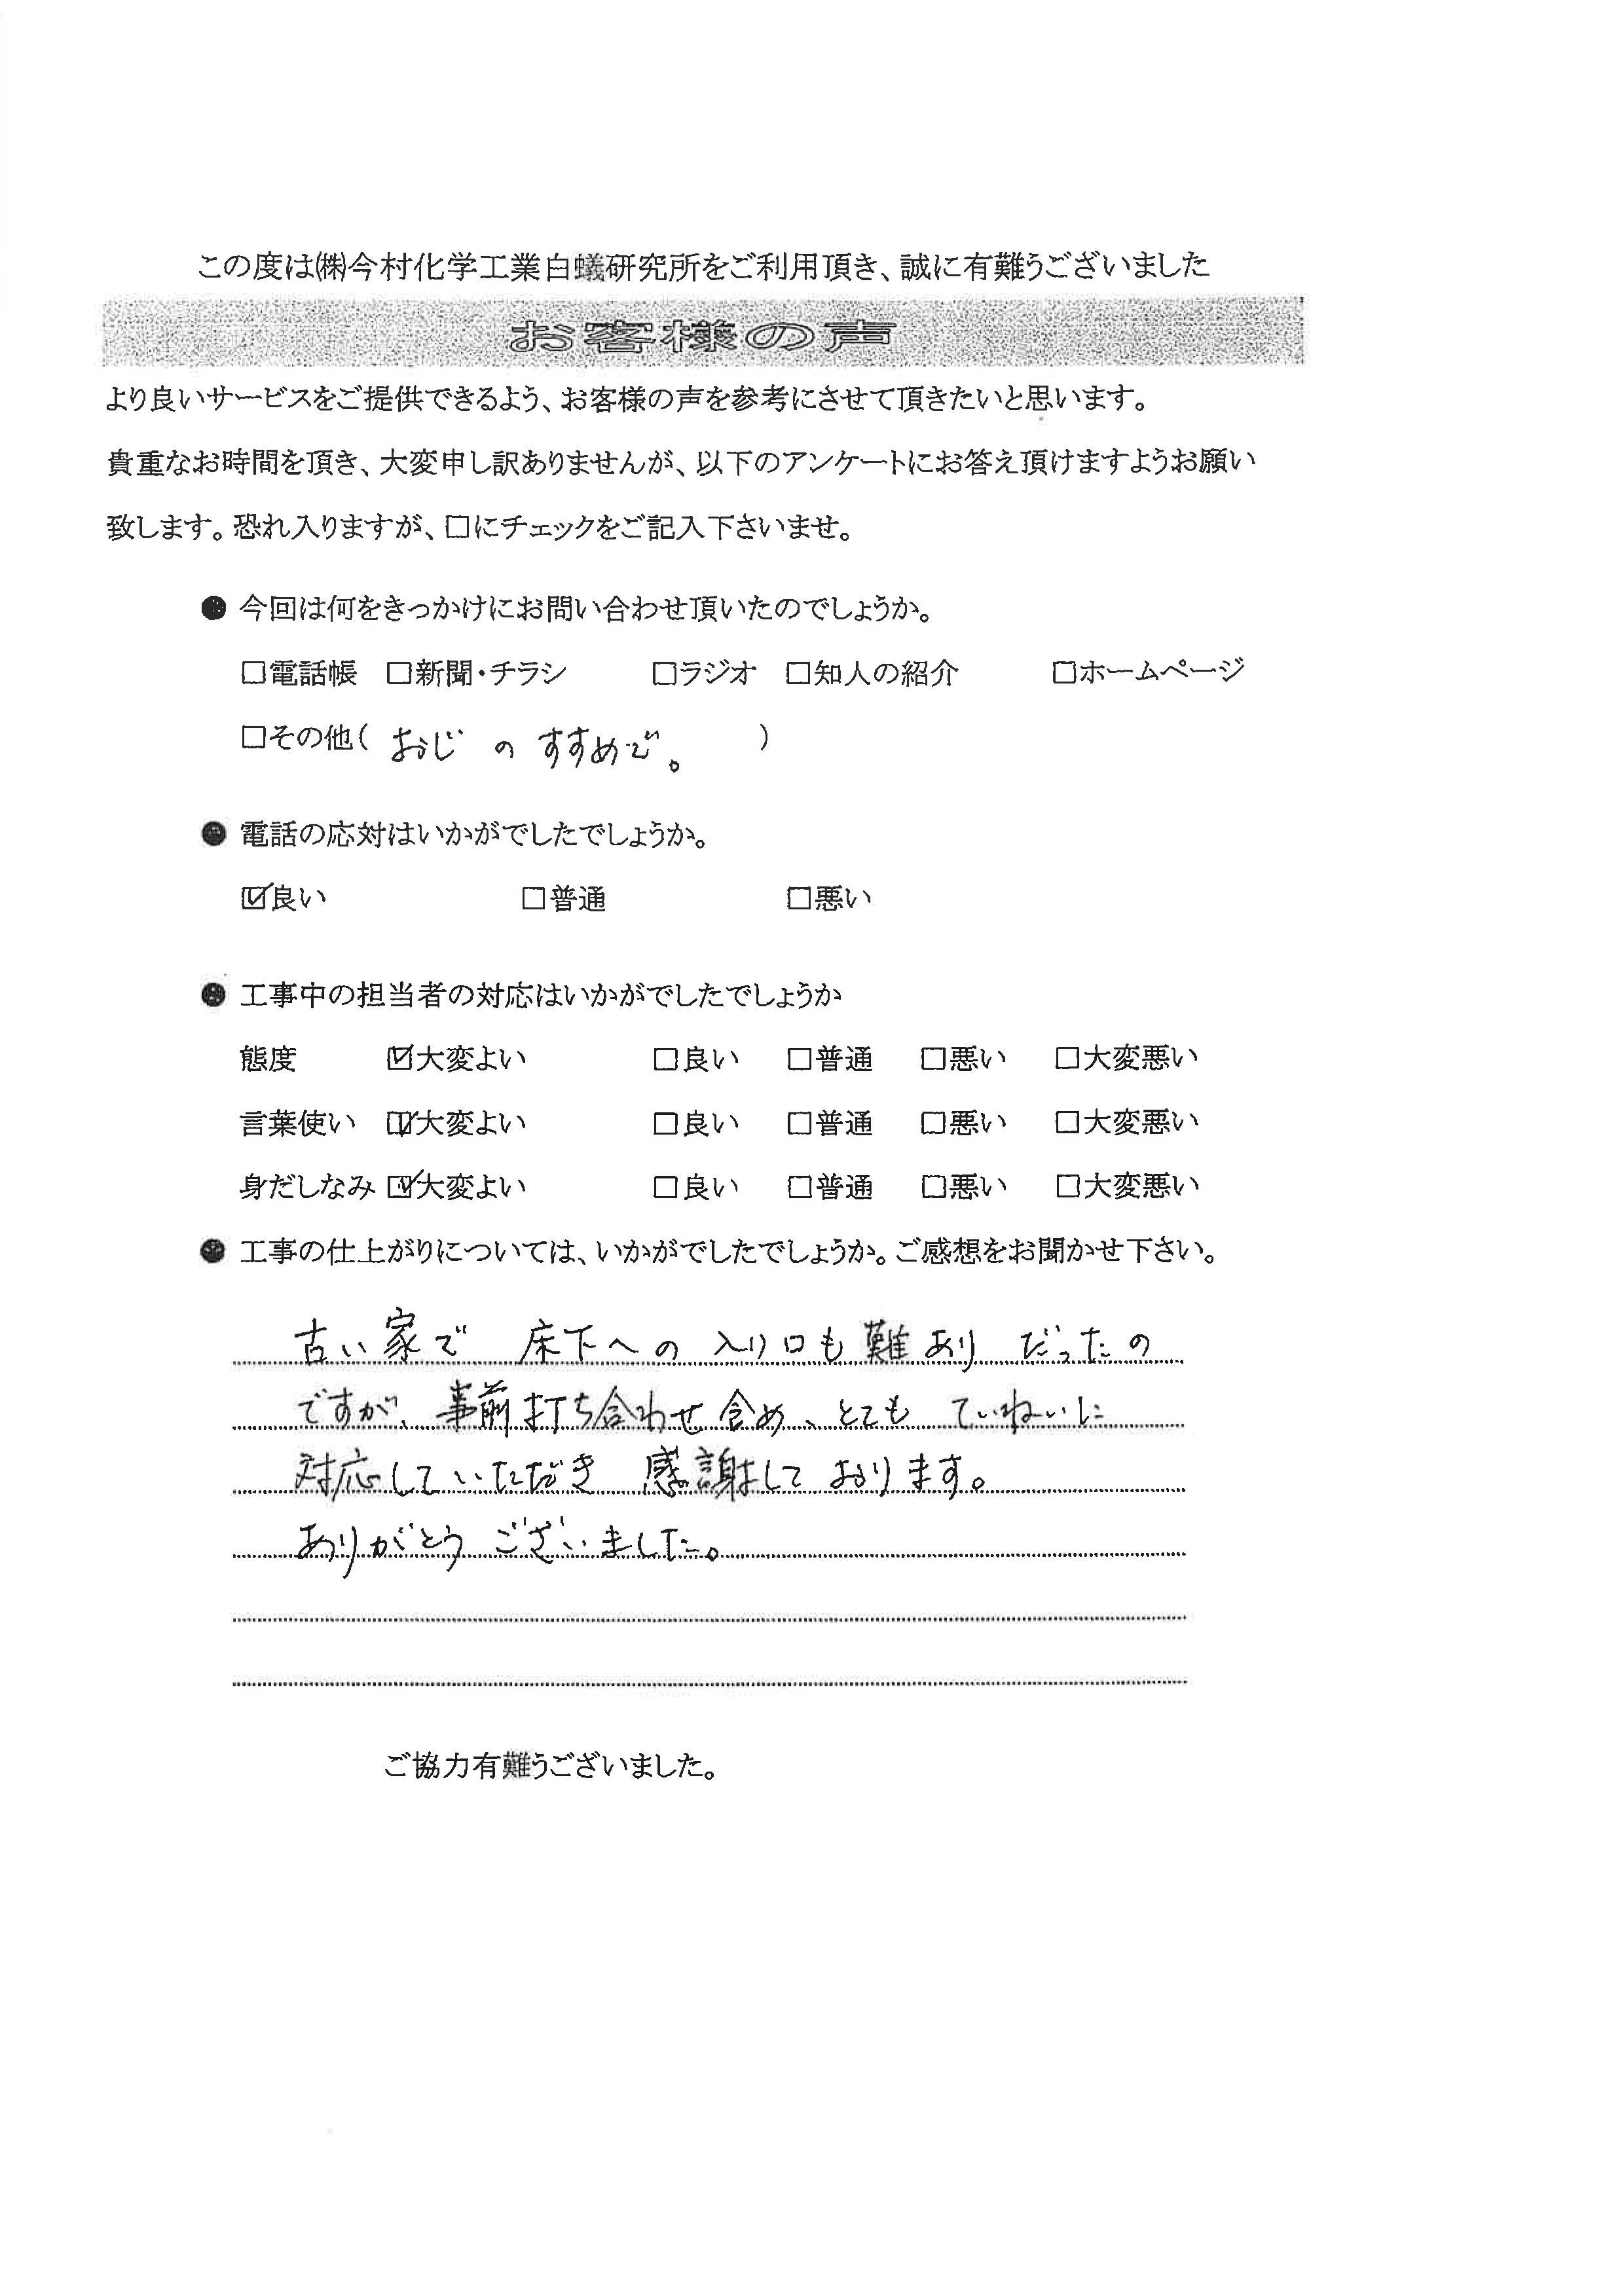 この度は㈱今村化学工業白蟻研究所をご利用頂き、誠に有難うございました
お客様の声
より良いサービスをご提供できるよう、お客様の声を参考にさせて頂きたいと思います。
貴重なお時間を頂き、大変申し訳ありませんが、以下のアンケートにお答え頂けますようお願い
致します。恐れ入りますが、□にチェックをご記入下さいませ。
● 今回は何をきっかけにお問い合わせ頂いたのでしょうか。
□電話帳 □新聞・チラシ □ラジオ □知人の紹介 □ホームページ
□その他( おじ の すすめで。 )
● 電話の応対はいかがでしたでしょうか。
☑良い □普通 □悪い
● 工事中の担当者の対応はいかがでしたでしょうか
態度 ☑大変よい □良い □普通 □悪い □大変悪い
言葉使い ☑大変よい □良い □普通 □悪い □大変悪い
身だしなみ ☑大変よい □良い □普通 □悪い □大変悪い
● 工事の仕上がりについては、いかがでしたでしょうか。ご感想をお聞かせ下さい。
古い家で 床下への 入り口も難あり だったの
ですが、事前打ち合わせ含め、とても ていねいに
対応していただき 感謝して おります。
ありがとう ございました。
ご協力有難うございました。